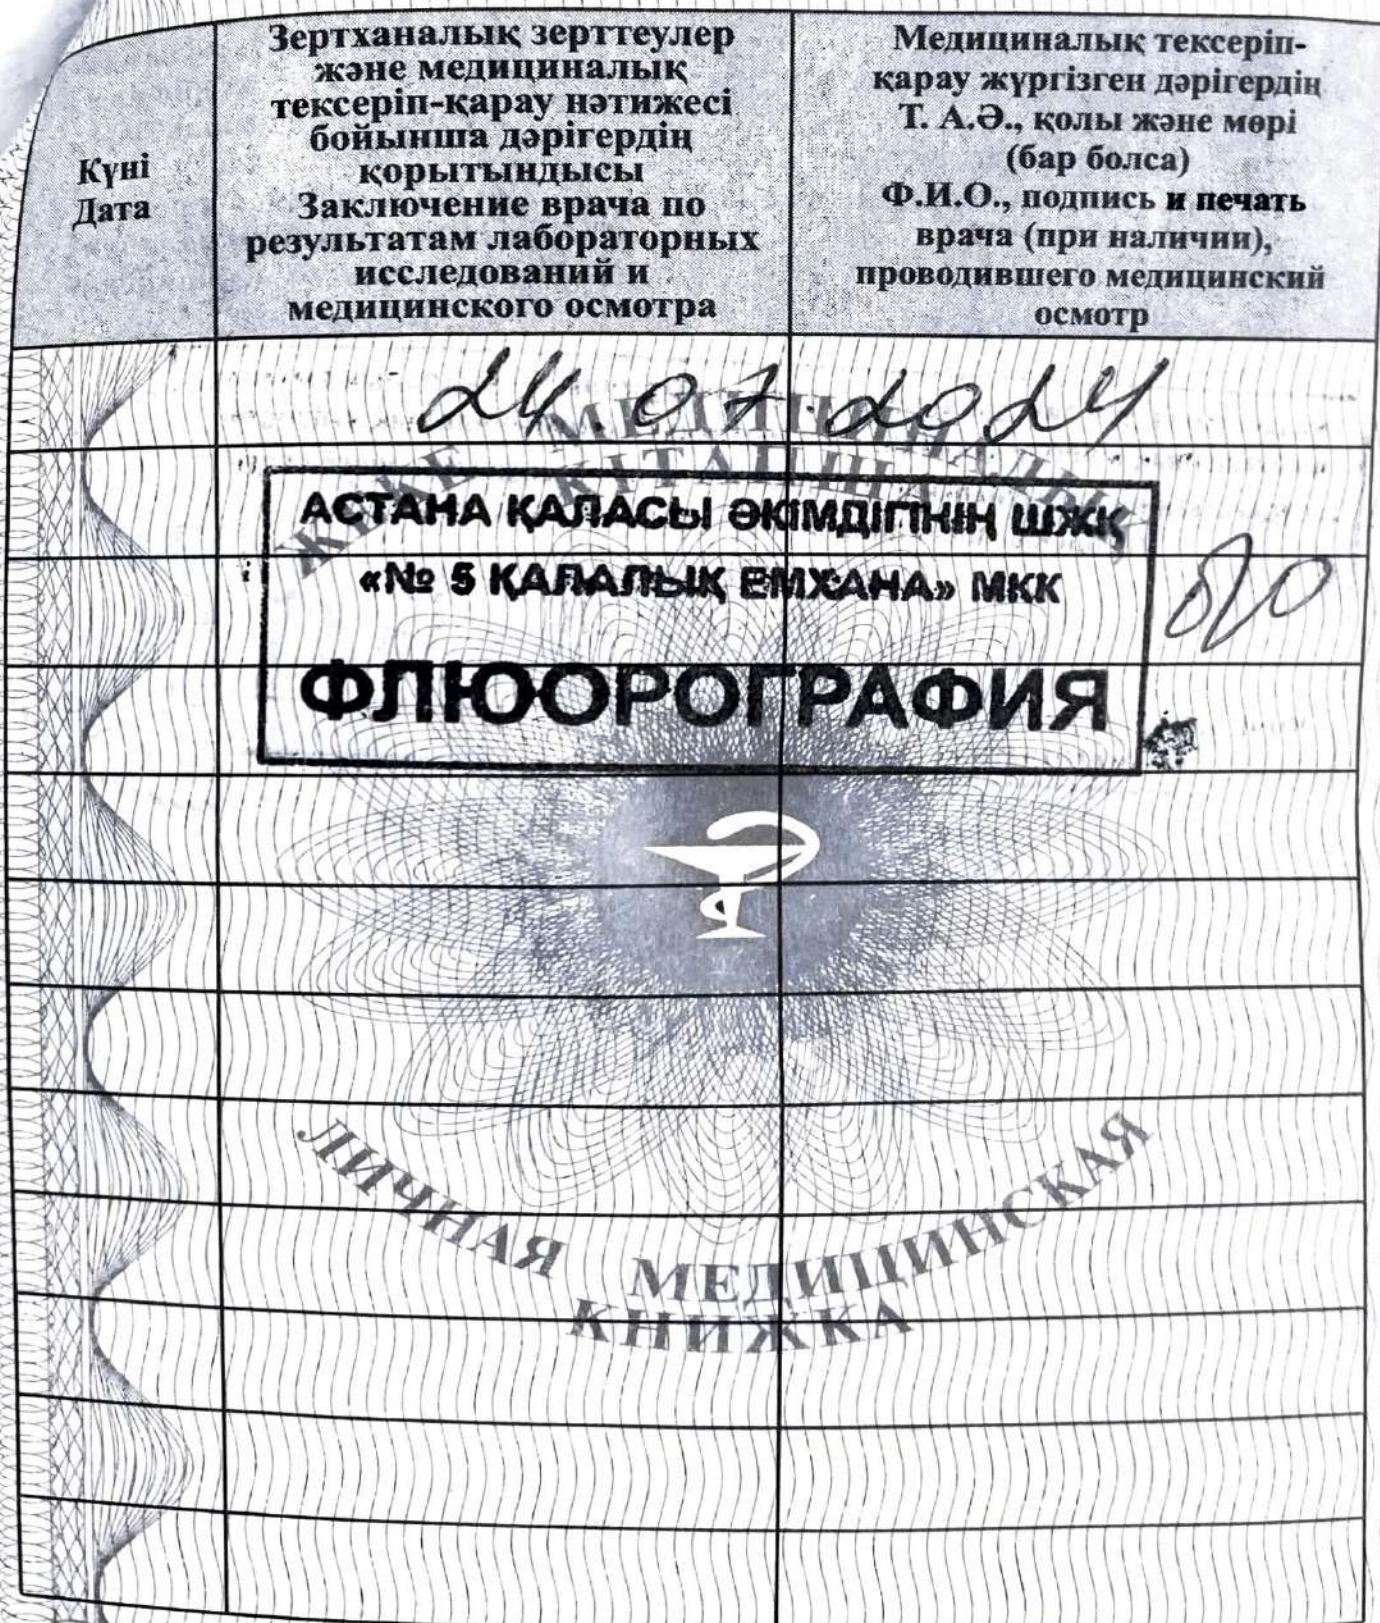 Күні
Дата
Зертханалық зерттеулер
және медициналық
тексеріп-қарау нәтижесі
бойынша дәрігердің
қорытындысы
Заключение врача по
результатам лабораторных
исследований и
медицинского осмотра
Медициналық тексеріп-
қарау жүргізген дәрігердің
Т. А.Ә., қолы және мөрі
(бар болса)
Ф.И.О., подпись и печать
врача (при наличии),
проводившего медицинский
осмотр
24.07.2024
ЖЕКЕ МЕДИЦИНАЛЫҚ
КІТАПША
АСТАНА ҚАЛАСЫ ӘКІМДІГІНІҢ ШЖҚ
«№ 5 ҚАЛАЛЫҚ ЕМХАНА» МКК
ФЛЮОРОГРАФИЯ
ЛИЧНАЯ МЕДИЦИНСКАЯ
КНИЖКА